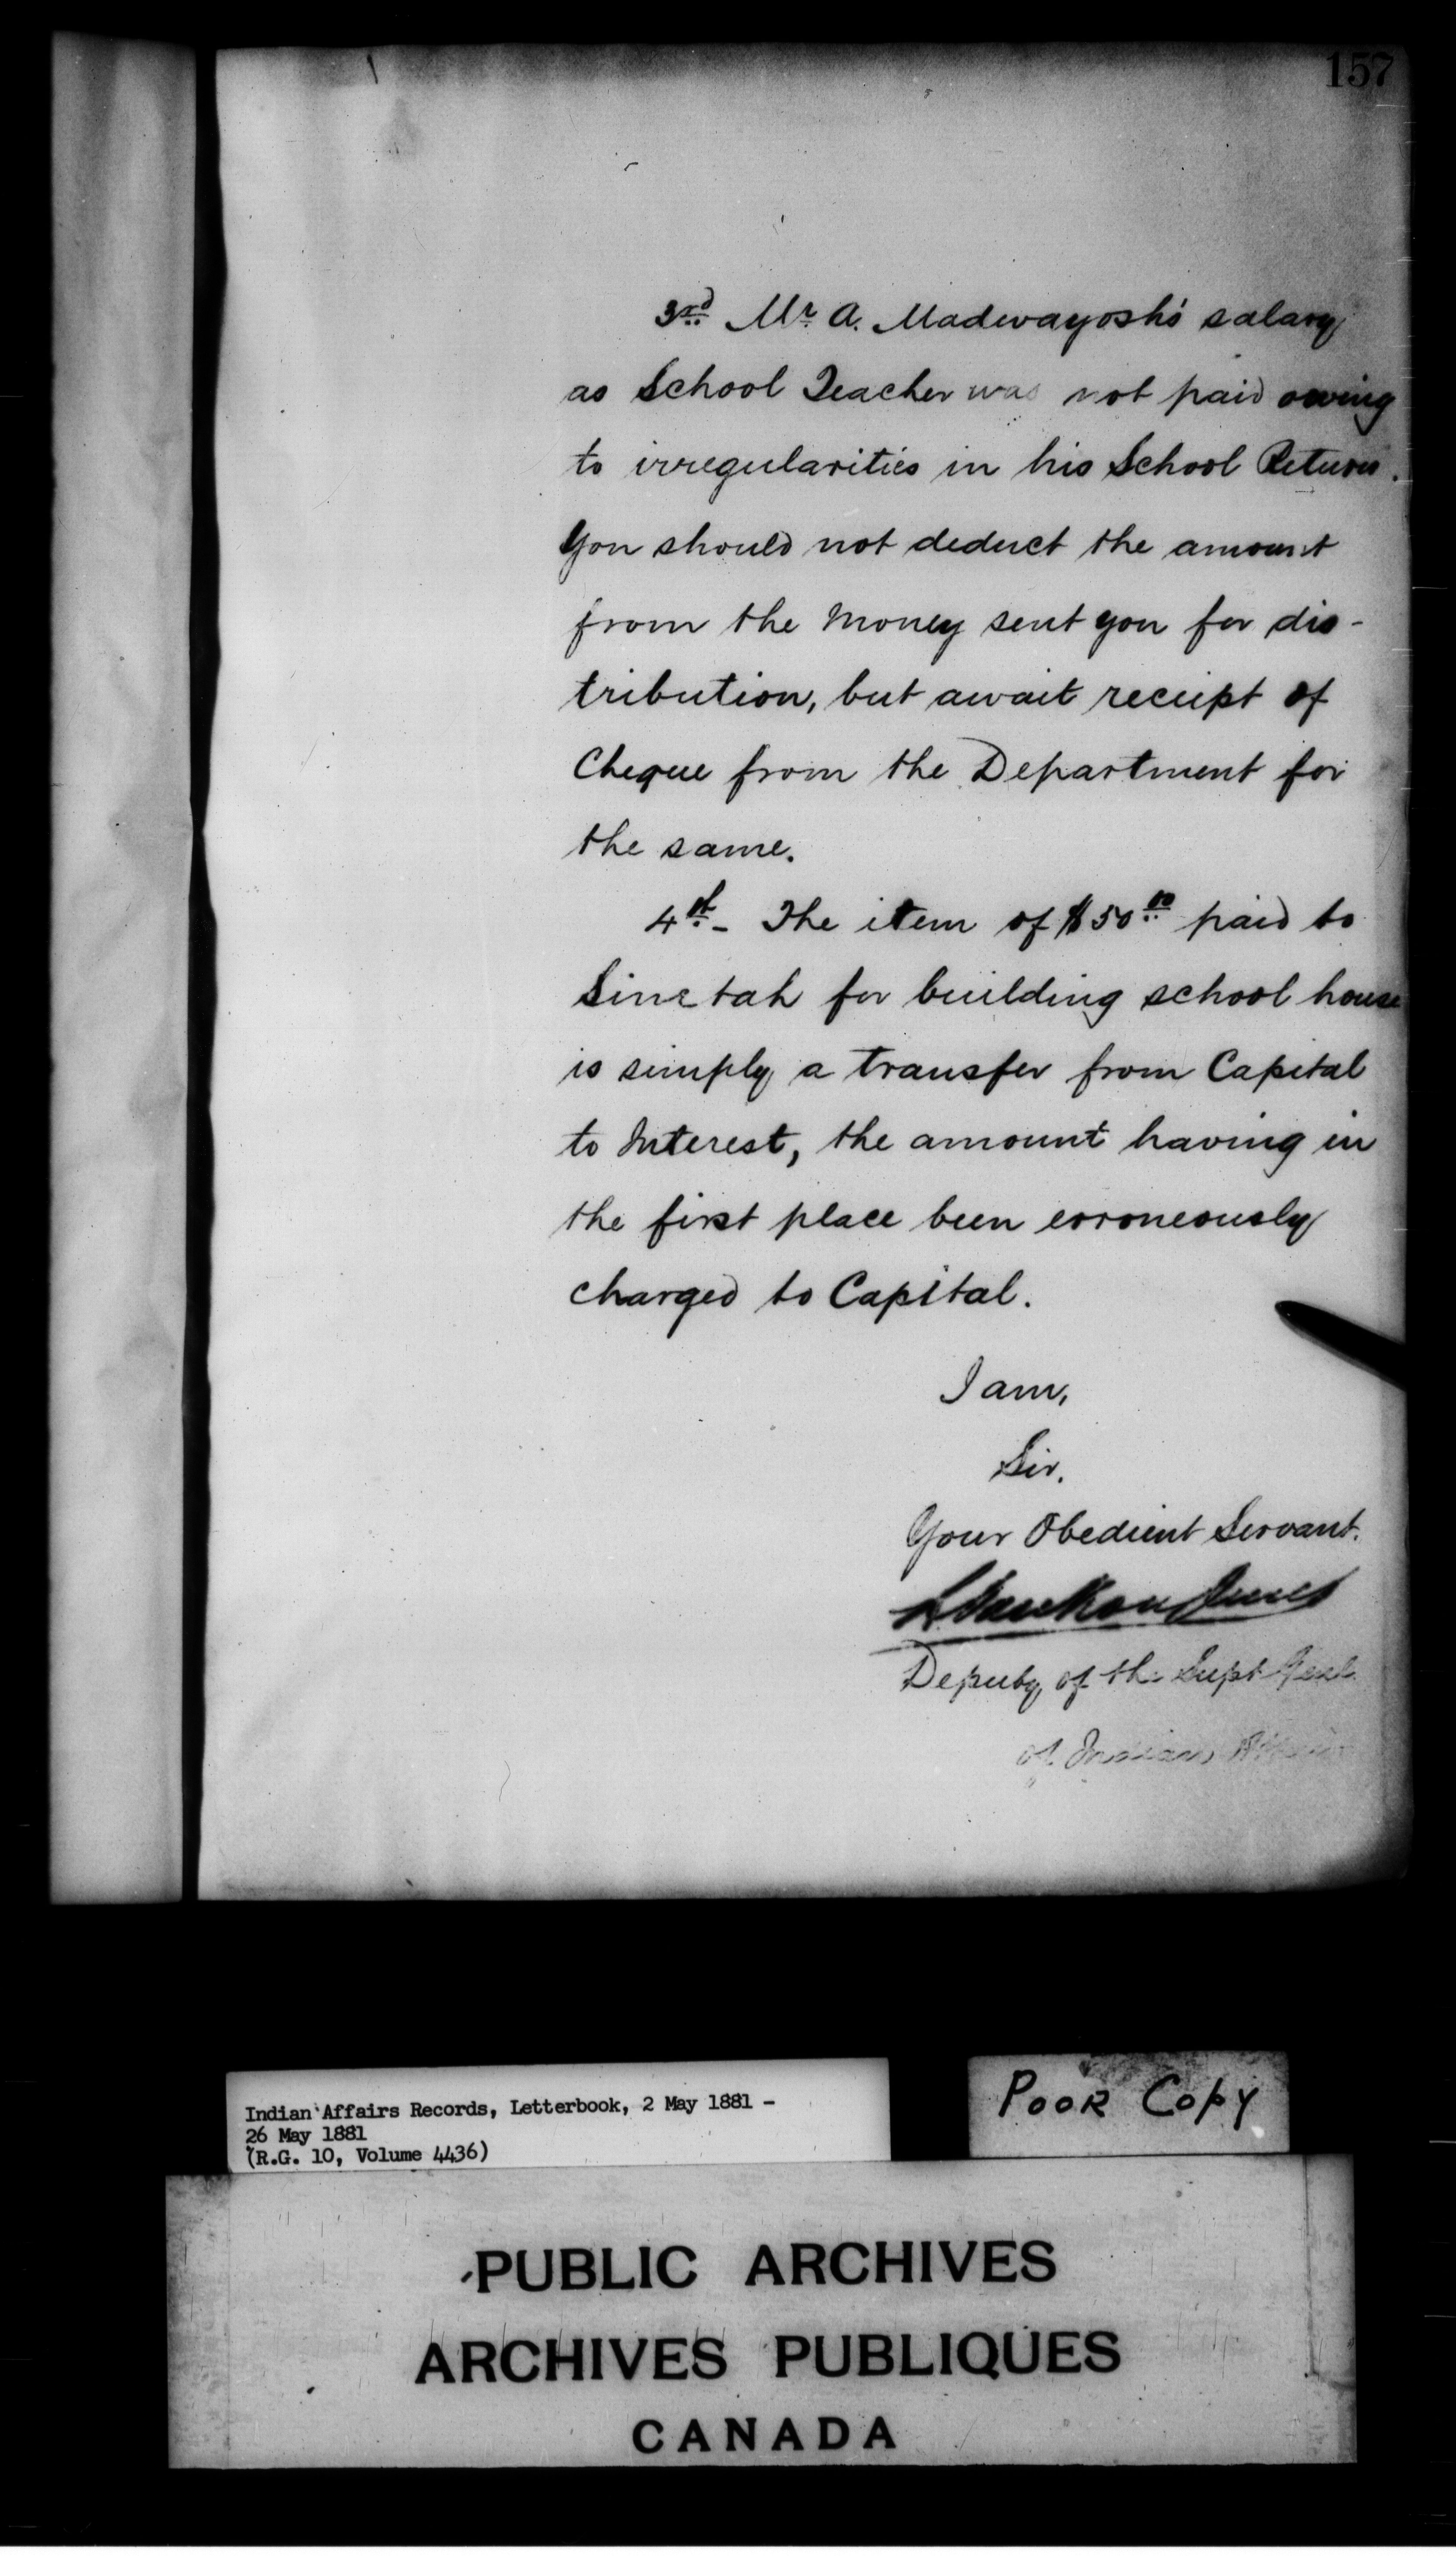 157
3rd Mr A. Madwayosh's salary
as School Teacher was not paid owing
to irregularities in his School Returns.
You should not deduct the amount
from the money sent you for dis-
tribution, but await receipt of
Cheque from the Department for
the same.
4th - The item of $50.00 paid to
Sinetah for building school house
is simply a transfer from Capital
to Interest, the amount having in
the first place been erroneously
charged to Capital.
I am,
Sir.
Your Obedient Servant.
L. VanKoughnet
Deputy of the Supt Genl.
of Indian Affairs
Indian Affairs Records, Letterbook, 2 May 1881 -
26 May 1881
(R.G. 10, Volume 4436)
POOR COPY
PUBLIC ARCHIVES
ARCHIVES PUBLIQUES
CANADA